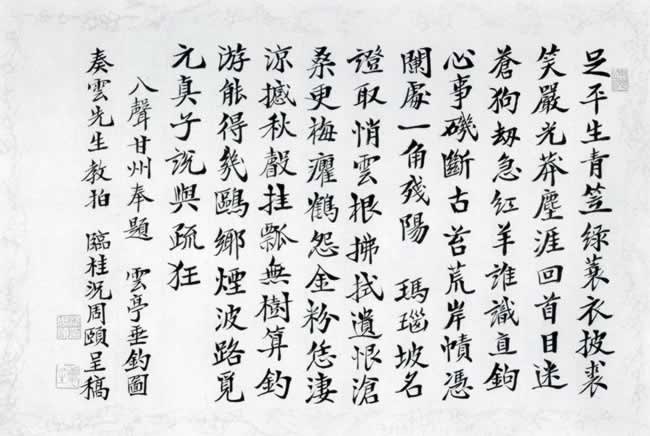 足平生青笠綠蓑衣披裘
笑嚴光莽塵涯回首日迷
蒼狗劫急紅羊誰識直鉤
心事磯斷古苔荒岸幘憑
闌處一角殘陽 瑪瑙坡名
證取悄雲根拂拭遺恨滄
桑更梅癯鶴怨金粉恁淒
涼撼秋聲挂瓢無樹算釣
游能得幾鷗鄉煙波路覓
元真子說與疏狂
八聲甘州奉題 雲亭垂釣圖
奏雲先生教拍 臨桂況周頤呈稿